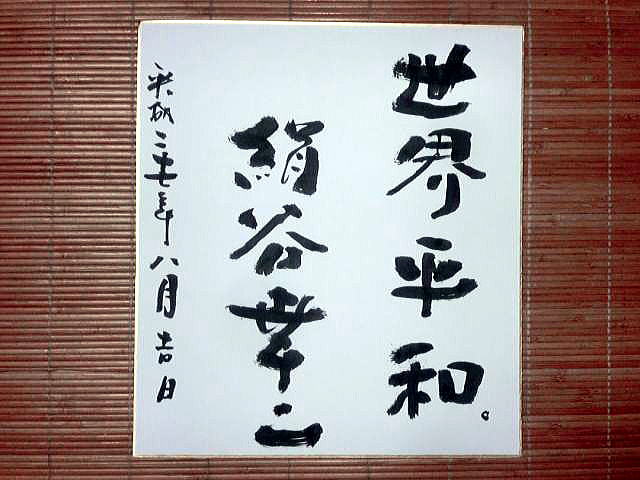 世界平和。
絹谷幸二
平成二十七年八月吉日